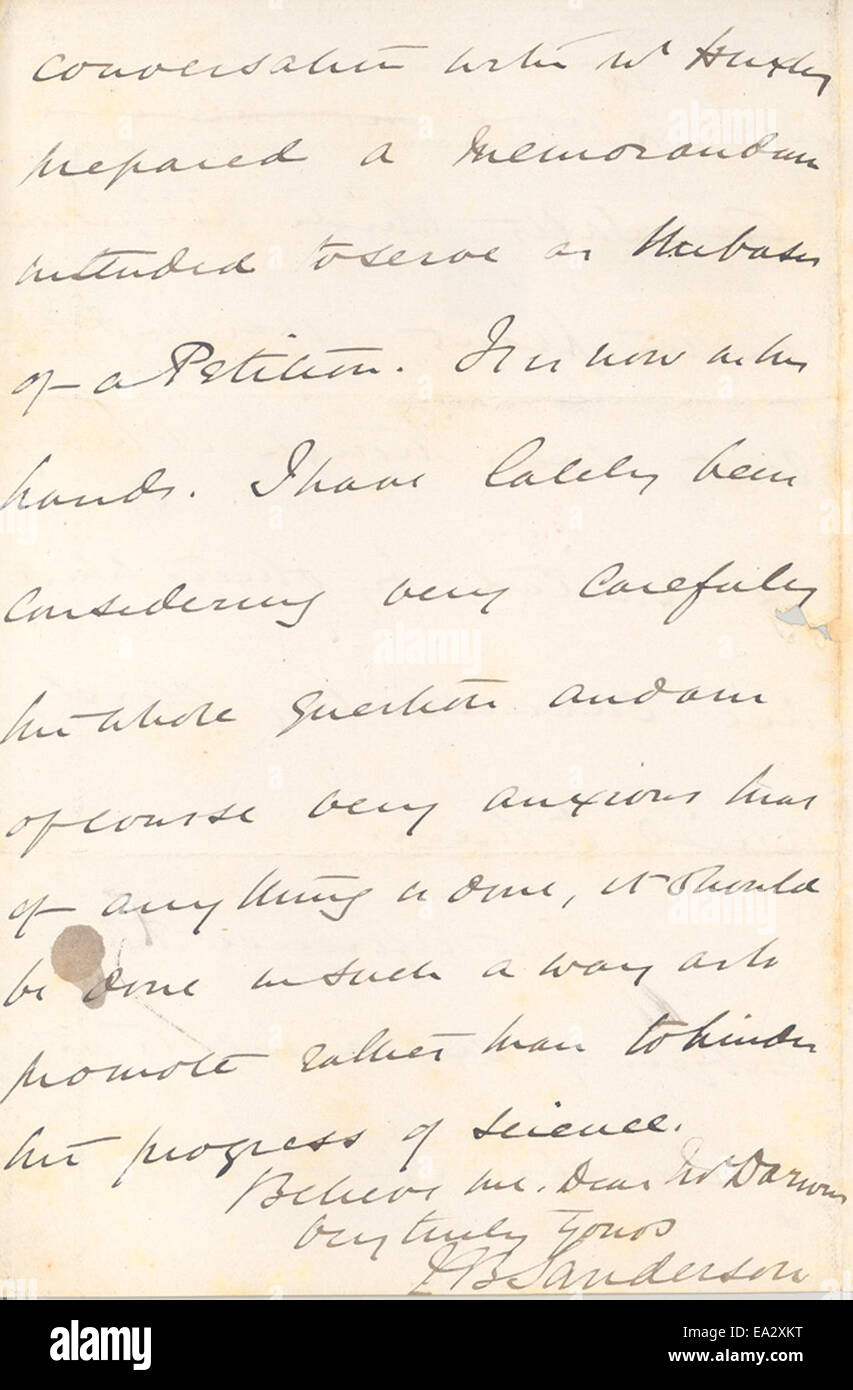 conversation with Mr Huxley
prepared a Memorandum
intended to serve as the basis
of a Petition. It is now in his
hands. I have lately been
considering very carefuly
the whole question and am
of course very anxious that
if anything is done, it should
be done in such a way as to
promote rather than to hinder
the progress of science.
Believe me. Dear Mr Darwin
very truly Yours
JB Sanderson
alamy
Image ID: EA2XKT
www.alamy.com